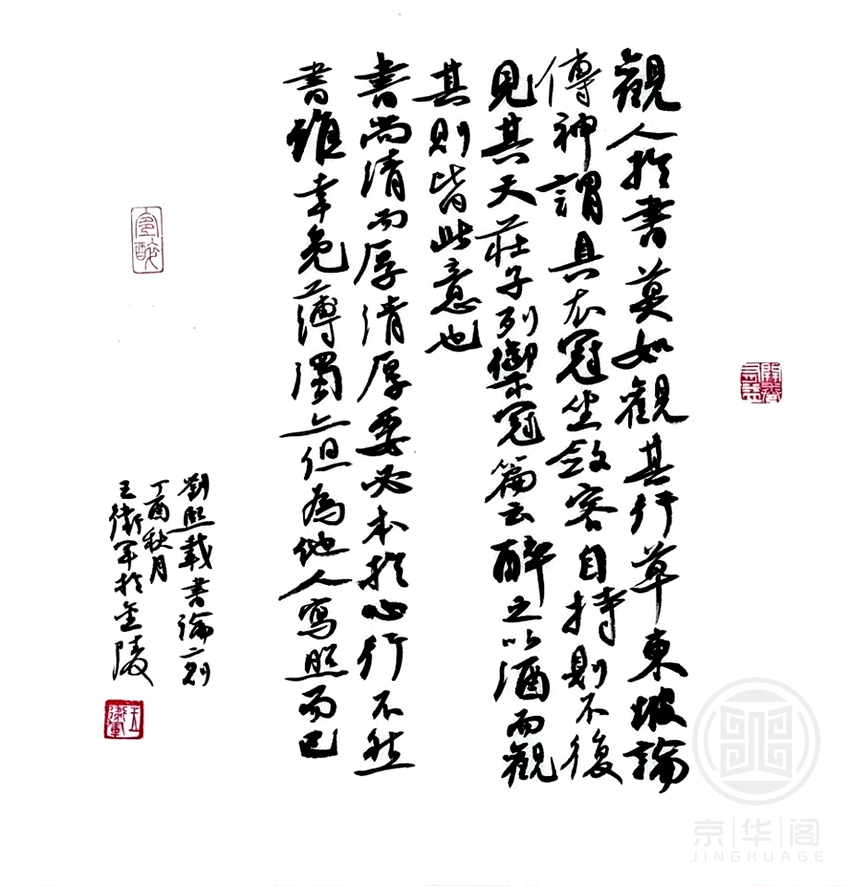 觀人於書莫如觀其行草東坡論
傳神謂具衣冠坐斂容自持則不復
見其天莊子列禦寇篇云醉之以酒而觀
其則皆此意也
書尚清而厚清厚要必本於心行不然
書雖幸免薄濁亦但為他人寫照而已
劉熙載書論二則
丁酉秋月
王衛軍於金陵
王衛軍
京华阁
JINGHUAGE